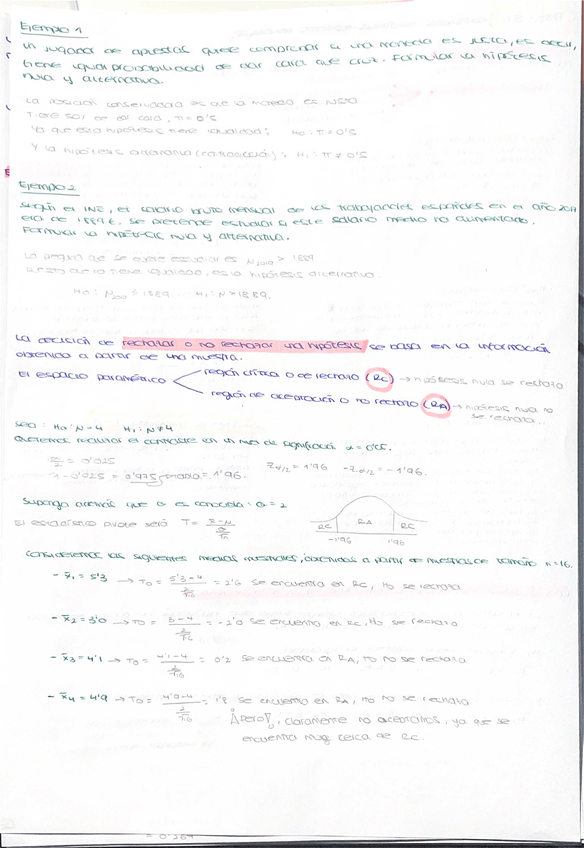 Ejemplo 1
Un jugador de apuestas quiere comprobar si una moneda es justa, es decir,
tiene igual probabilidad de dar cara que cruz. Formular la hipótesis
nula y alternativa.
La posición conservadora es que la moneda es justa
Tiene 50% de dar cara, π=0'5
Ya que esta hipótesis tiene igualdad: H0: π=0'5
Y la hipótesis alternativa (contradicción): H1: π≠0'5
Ejemplo 2
Según el INE, el salario bruto mensual de los trabajadores españoles en el año 2017
era de 1889€. Se pretende estudiar si este salario medio ha aumentado.
Formular la hipótesis nula y alternativa.
La pregunta que se quiere estudiar es > 1889
no tiene igualdad, es la hipótesis alternativa
H0: ≤1889 H1: μ>1889.
La decisión de rechazar o no rechazar una hipótesis, se basa en la información
obtenida a partir de una muestra.
El espacio paramétrico
región crítica o de rechazo (RC) → hipótesis nula se rechaza
región de aceptación o no rechazo (RA) → hipótesis nula no
se rechaza.
sea: H0: μ=4 H1: μ≠4
Queremos realizar el contraste en un nivel de significación α=0'05.
α/2 = 0'025
1-0'025 = 0'975 → = 1'96. Zα/2=1'96 -Zα/2=-1'96.
Suponga además que σ es conocida: σ=2
El estadístico pivote será T=
RC RA RC
-1'96 1'96
Consideremos las siguientes medias muestrales, obtenidas a partir de muestras de tamaño n=16.
- x̄1=5'3 → T0 = (5'3-4)/(2/√16) = 2'6 se encuentra en RC, H0 se rechaza
- x̄2=3'0 → T0 = (3-4)/(2/√16) = -2'0 se encuentra en RC, H0 se rechaza
- x̄3=4'1 → T0 = (4'1-4)/(2/√16) = 0'2 se encuentra en RA, H0 no se rechaza
- x̄4=4'9 → T0 = (4'9-4)/(2/√16) = 1'8 se encuentra en RA, H0 no se rechaza
¡Pero!, claramente no aceptamos, ya que se
encuentra muy cerca de RC.